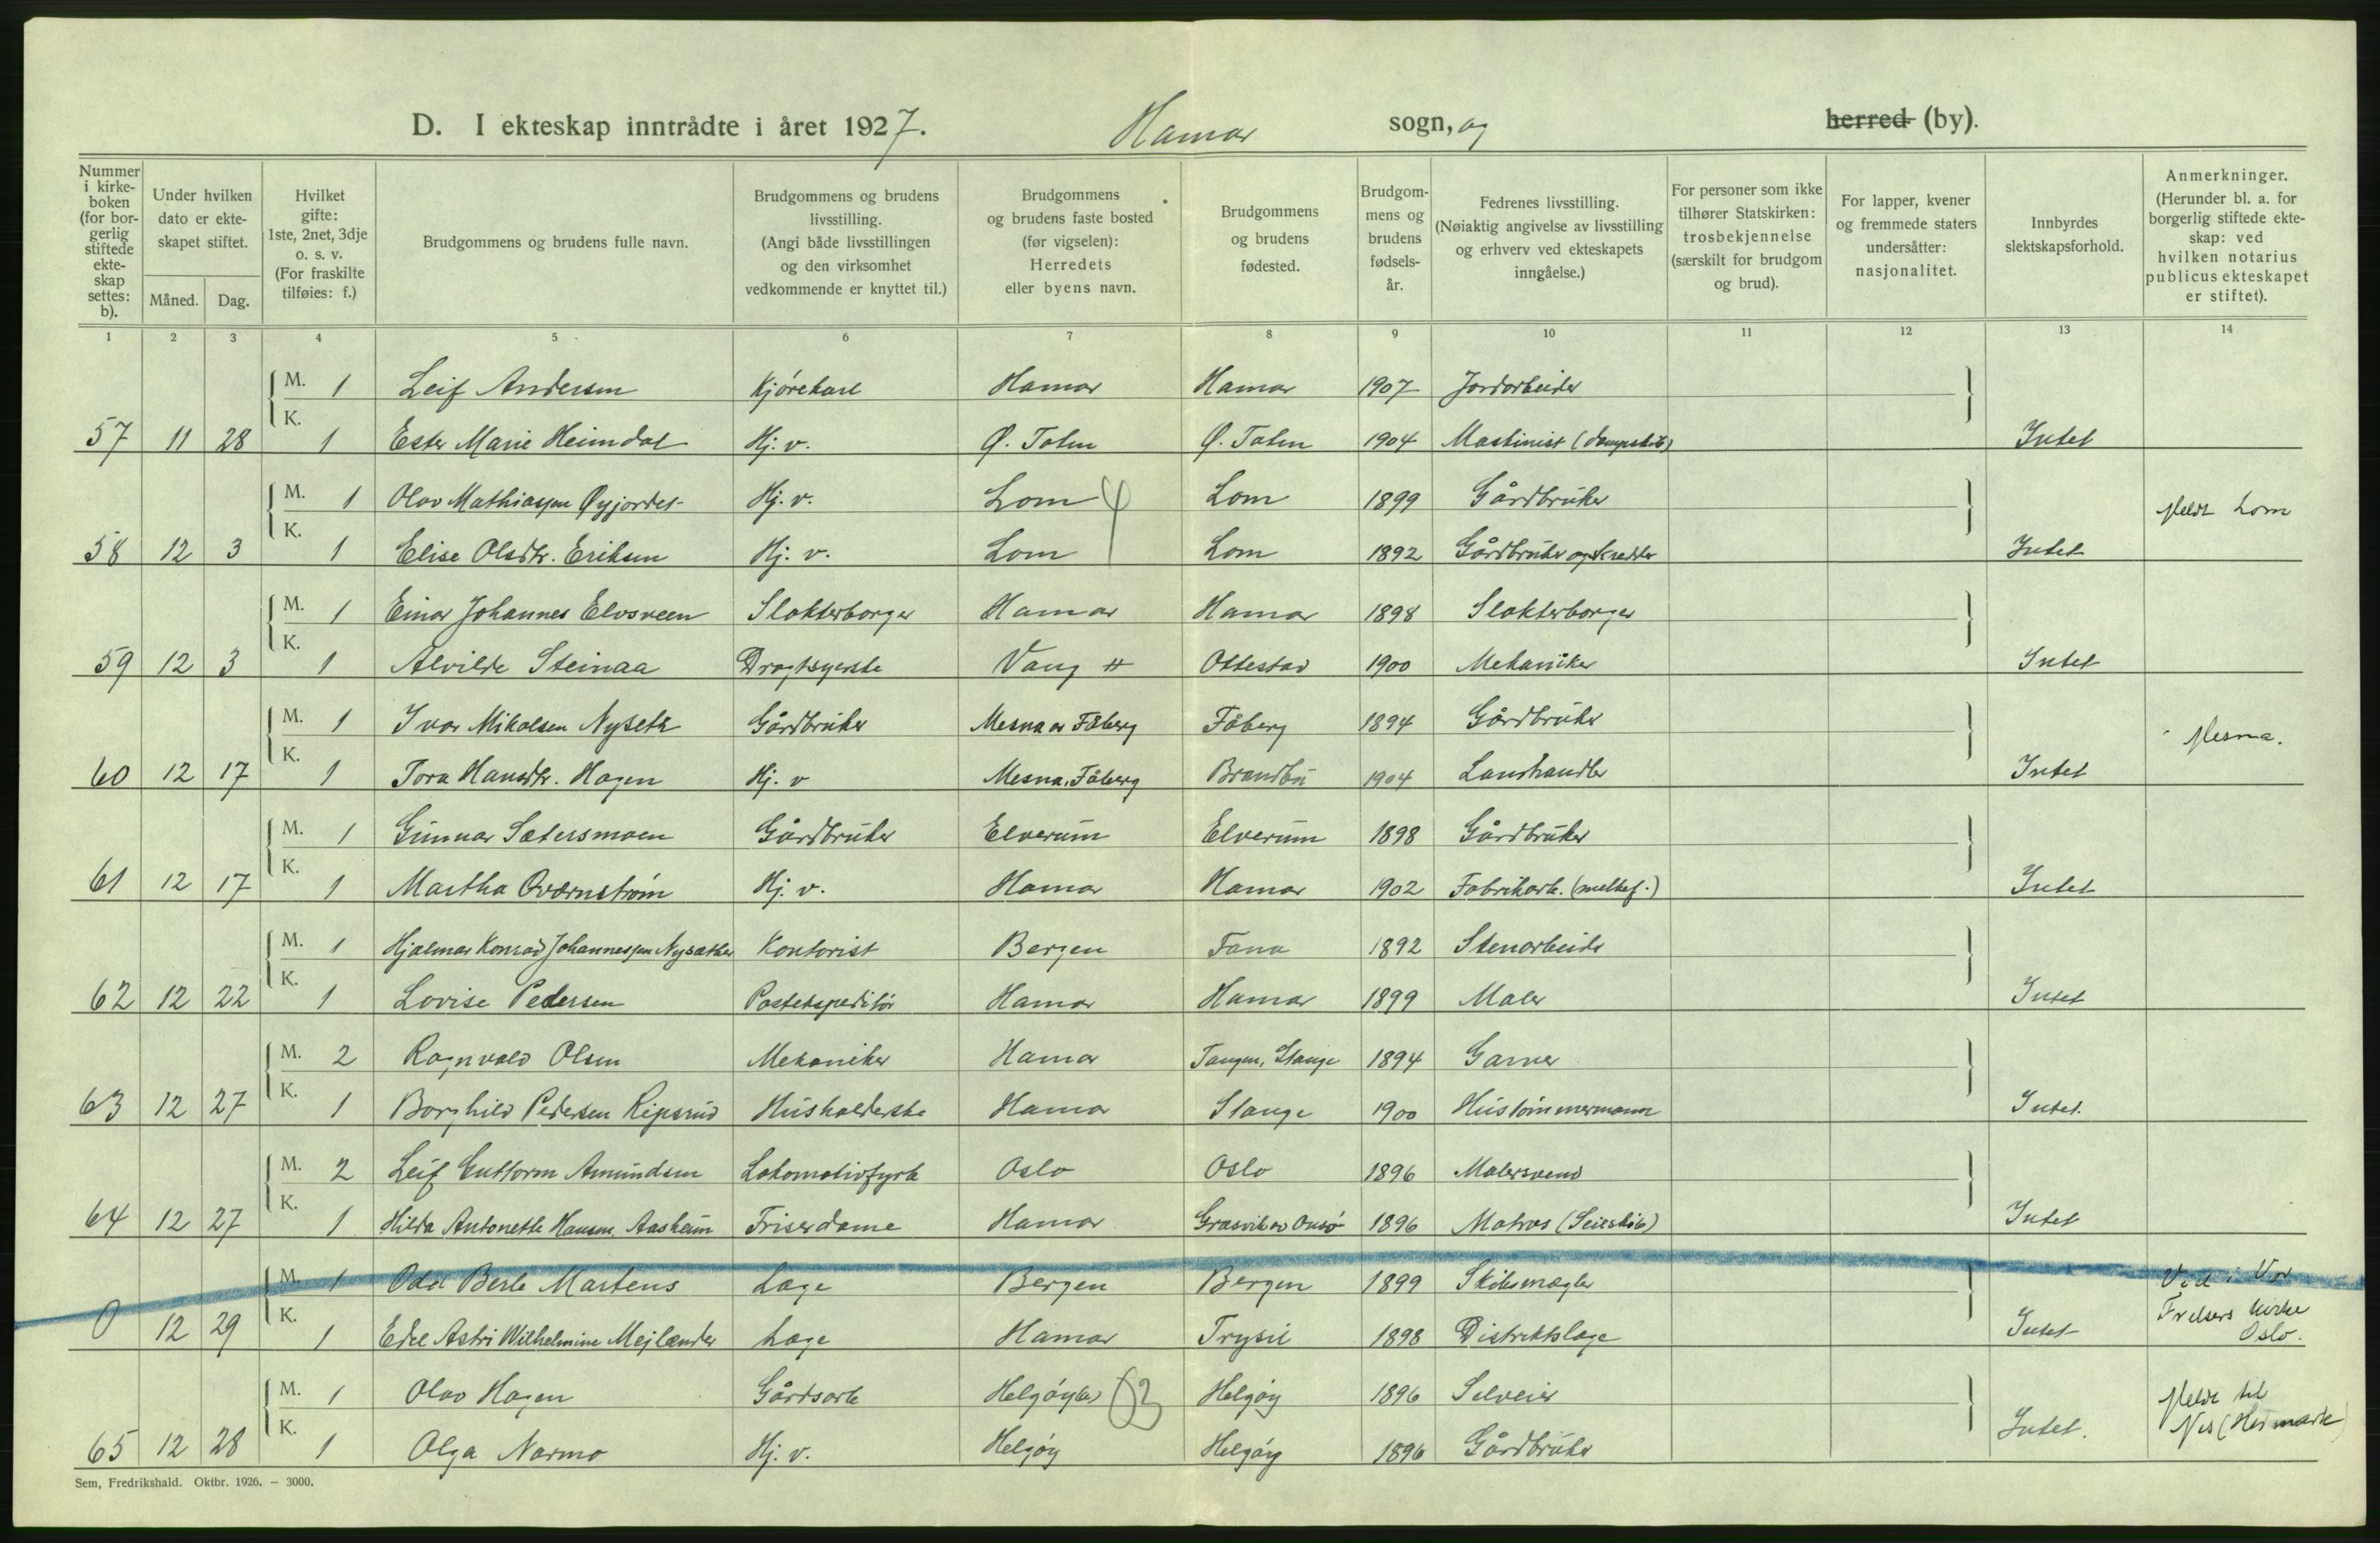 D. I ekteskap inntrådte i året 1927. Hamar sogn, og herred (by).
Nummer i kirkeboken (for borgerlig stiftede ekteskap settes: b).
Under hvilken dato er ekteskapet stiftet.
Måned. Dag.
Hvilket gifte: 1ste, 2net, 3dje o. s. v. (For fraskilte tilføies: f.)
Brudgommens og brudens fulle navn.
Brudgommens og brudens livsstilling. (Angi både livsstillingen og den virksomhet vedkommende er knyttet til.)
Brudgommens og brudens faste bosted (før vigselen): Herredets eller byens navn.
Brudgommens og brudens fødested.
Brudgommens og brudens fødselsår.
Fedrenes livsstilling. (Nøiaktig angivelse av livsstilling og erhverv ved ekteskapets inngåelse.)
For personer som ikke tilhører Statskirken: trosbekjennelse (særskilt for brudgom og brud).
For lapper, kvener og fremmede staters undersåtter: nasjonalitet.
Innbyrdes slektskapsforhold.
Anmerkninger. (Herunder bl. a. for borgerlig stiftede ekteskap: ved hvilken notarius publicus ekteskapet er stiftet).
1 2 3 4 5 6 7 8 9 10 11 12 13 14
M. 1 Leif Andersen Kjörekarl Hamar Hamar 1907 Jordarbeider
57 11 28 K. 1 Ester Marie Heimdal Hj. v. Ø. Toten Ø. Toten 1904 Maskinist (dampskib) Intet
M. 1 Olav Mathiassen Øyjordet Hj. v. Lom Lom 1899 Gårdbruker Meldt Lom
58 12 3 K. 1 Elise Olsdtr. Eriksen Hj. v. Lom Lom 1892 Gårdbruker og skredder Intet
M. 1 Einar Johannes Elvsveen Slakterborger Hamar Hamar 1898 Slakterborger
59 12 3 K. 1 Alvilde Steinaa Dragtsyerske Vang H Ottestad 1900 Mekaniker Intet
M. 1 Ivar Mikalsen Nyseth Gårdbruker Mesna av Fåberg Fåberg 1894 Gårdbruker Mesna.
60 12 17 K. 1 Tora Hansdtr. Hagen Hj. v Mesna, Fåberg Brandbu 1904 Landhandler Intet
M. 1 Gunnar Sætersmoen Gårdbruker Elverum Elverum 1898 Gårdbruker
61 12 17 K. 1 Martha Qværnstrøm Hj. v. Hamar Hamar 1902 Fabrikarb. (melkef.) Intet
M. 1 Hjalmar Konrad Johannessen Nysæther Kontorist Bergen Fana 1892 Stenarbeider
62 12 22 K. 1 Lovise Pedersen Postekspeditör Hamar Hamar 1899 Maler Intet
M. 2 Ragnvald Olsen Mekaniker Hamar Tangen, Stange 1894 Garver
63 12 27 K. 1 Borghild Pedersen Ripsrud Husholderske Hamar Stange 1900 Hustömmermann Intet.
M. 2 Leif Guttorm Amundsen Lokomotivfyrb Oslo Oslo 1896 Malersvend
64 12 27 K. 1 Hilda Antonette Hansen Aasheim Friserdame Hamar Græsvik av Onsö 1896 Matros (Seilskib) Intet
M. 1 Odd Berle Martens Læge Bergen Bergen 1899 Skibsmægler Ved i Vor
0 12 29 K. 1 Edel Astri Wilhelmine Mejlænder Læge Hamar Trysil 1898 Distriktslæge Intet Frelsers kirke Oslo.
M. 1 Olav Hagen Gårdsarb Helgöy Helgöy 1896 Selveier Meldt til
65 12 28 K. 1 Olga Narmo Hj. v. Helgöy Helgöy 1896 Gårdbruker Intet. Nes (Hedmark)
Sem, Fredrikshald. Oktbr. 1926. – 3000.